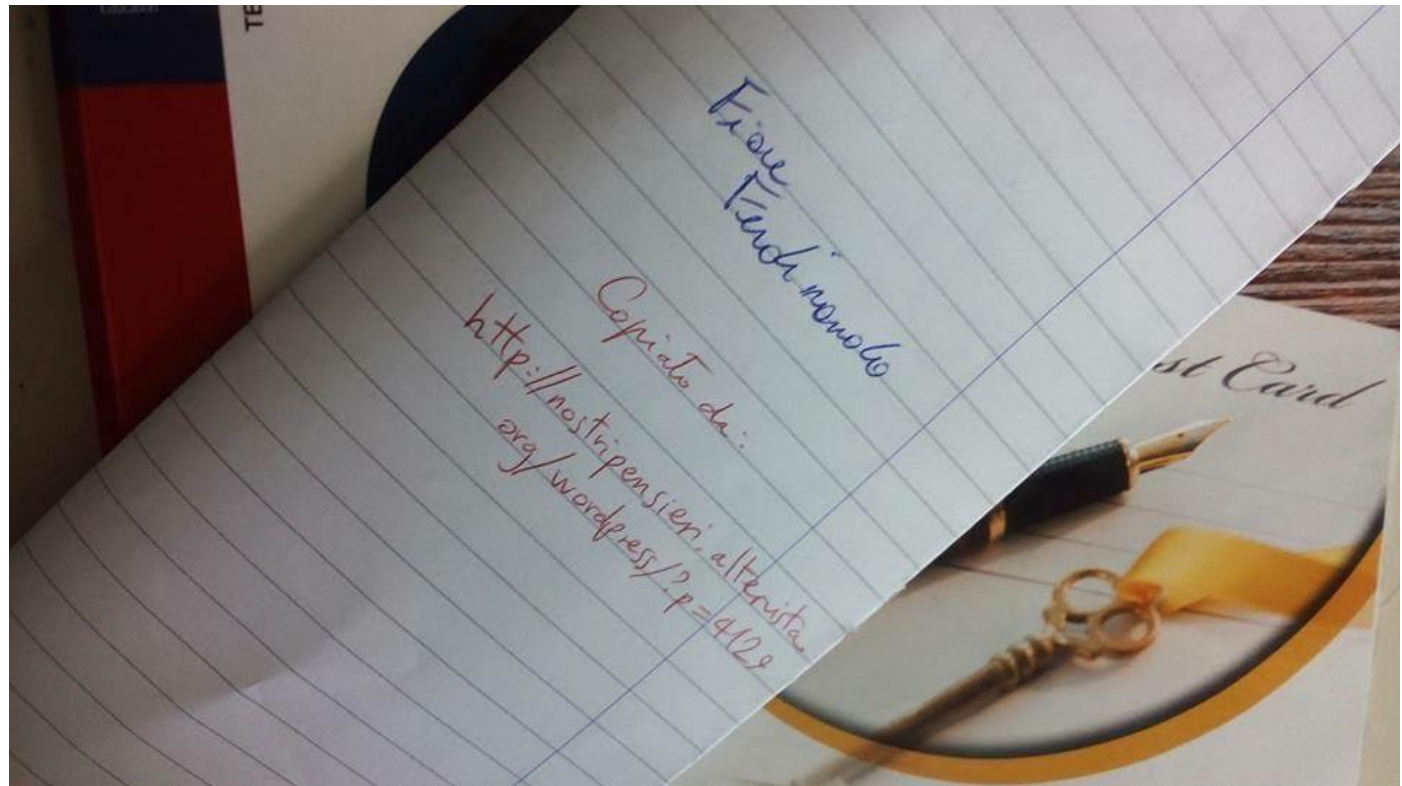 Education
TE
Fiore
Ferdinando
Copiato da:
http://nostripensieri.altervista.
org/wordpress/?p=4129
st Card